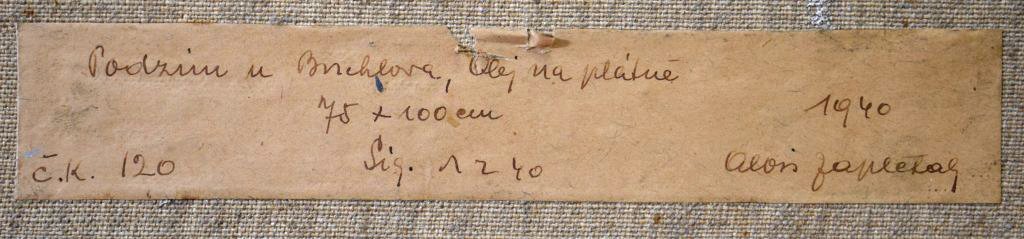 Podzim u Buchlova, Olej na plátně
75 x 100 cm
1940
č.k. 120
Sig. 1240
Alois Zapletal